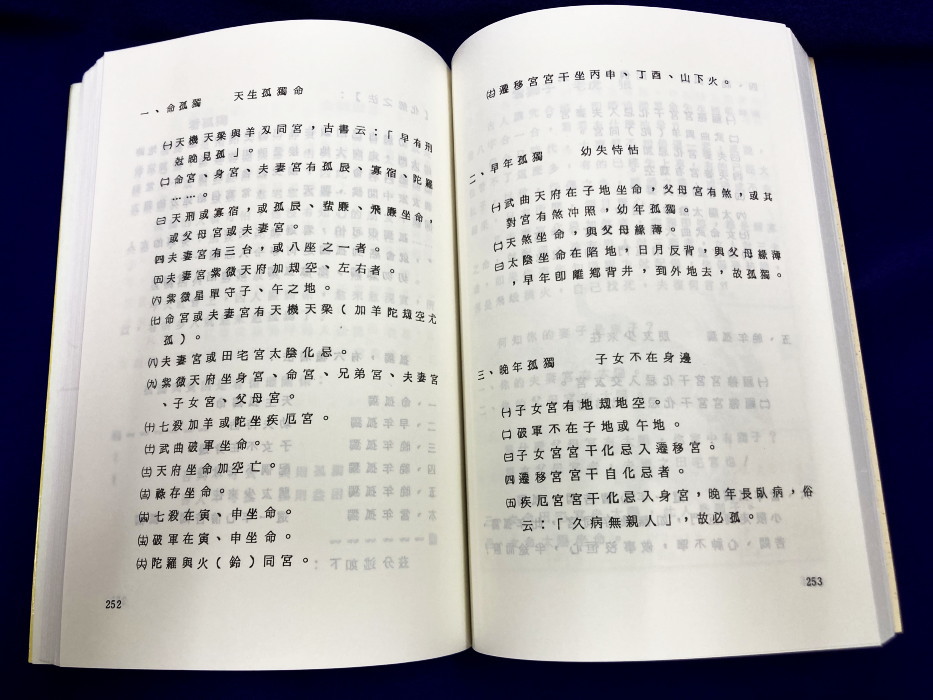 一、命孤獨　　天生孤獨命
㈠天機天梁與羊刃同宮，古書云：「早有刑
尅晚見孤」。
㈡命宮、身宮、夫妻宮有孤辰、寡宿、陀羅
……。
㈢天刑或寡宿，或孤辰、蜚廉、飛廉坐命，
或父母宮或夫妻宮。
㈣夫妻宮有三台，或八座之一者。
㈤夫妻宮紫微天府加刼空、左右者。
㈥紫微星單守子、午之地。
㈦命宮或夫妻宮有天機天梁（加羊陀刼空尤
孤）。
㈧夫妻宮或田宅宮太陰化忌。
㈨紫微天府坐身宮、命宮、兄弟宮、夫妻宮
、子女宮、父母宮。
㈩七殺加羊或陀坐疾厄宮。
(十一)武曲破軍坐命。
(十二)天府坐命加空亡。
(十三)祿存坐命。
(十四)七殺在寅、申坐命。
(十五)破軍在寅、申坐命。
(十六)陀羅與火（鈴）同宮。
252
(十七)遷移宮宮干坐丙申、丁酉、山下火。
二、早年孤獨　　幼失恃怙
㈠武曲天府在子地坐命，父母宮有煞，或其
對宮有煞冲照，幼年孤獨。
㈡天煞坐命，與父母緣薄。
㈢太陰坐命在陷地，日月反背，與父母緣薄
，早年卽離鄉背井，到外地去，故孤獨。
三、晚年孤獨　　子女不在身邊
㈠子女宮有地刼地空。
㈡破軍不在子地或午地。
㈢子女宮宮干化忌入遷移宮。
㈣遷移宮宮干自化忌者。
㈤疾厄宮宮干化忌入身宮，晚年長臥病，俗
云：「久病無親人」，故必孤。
253